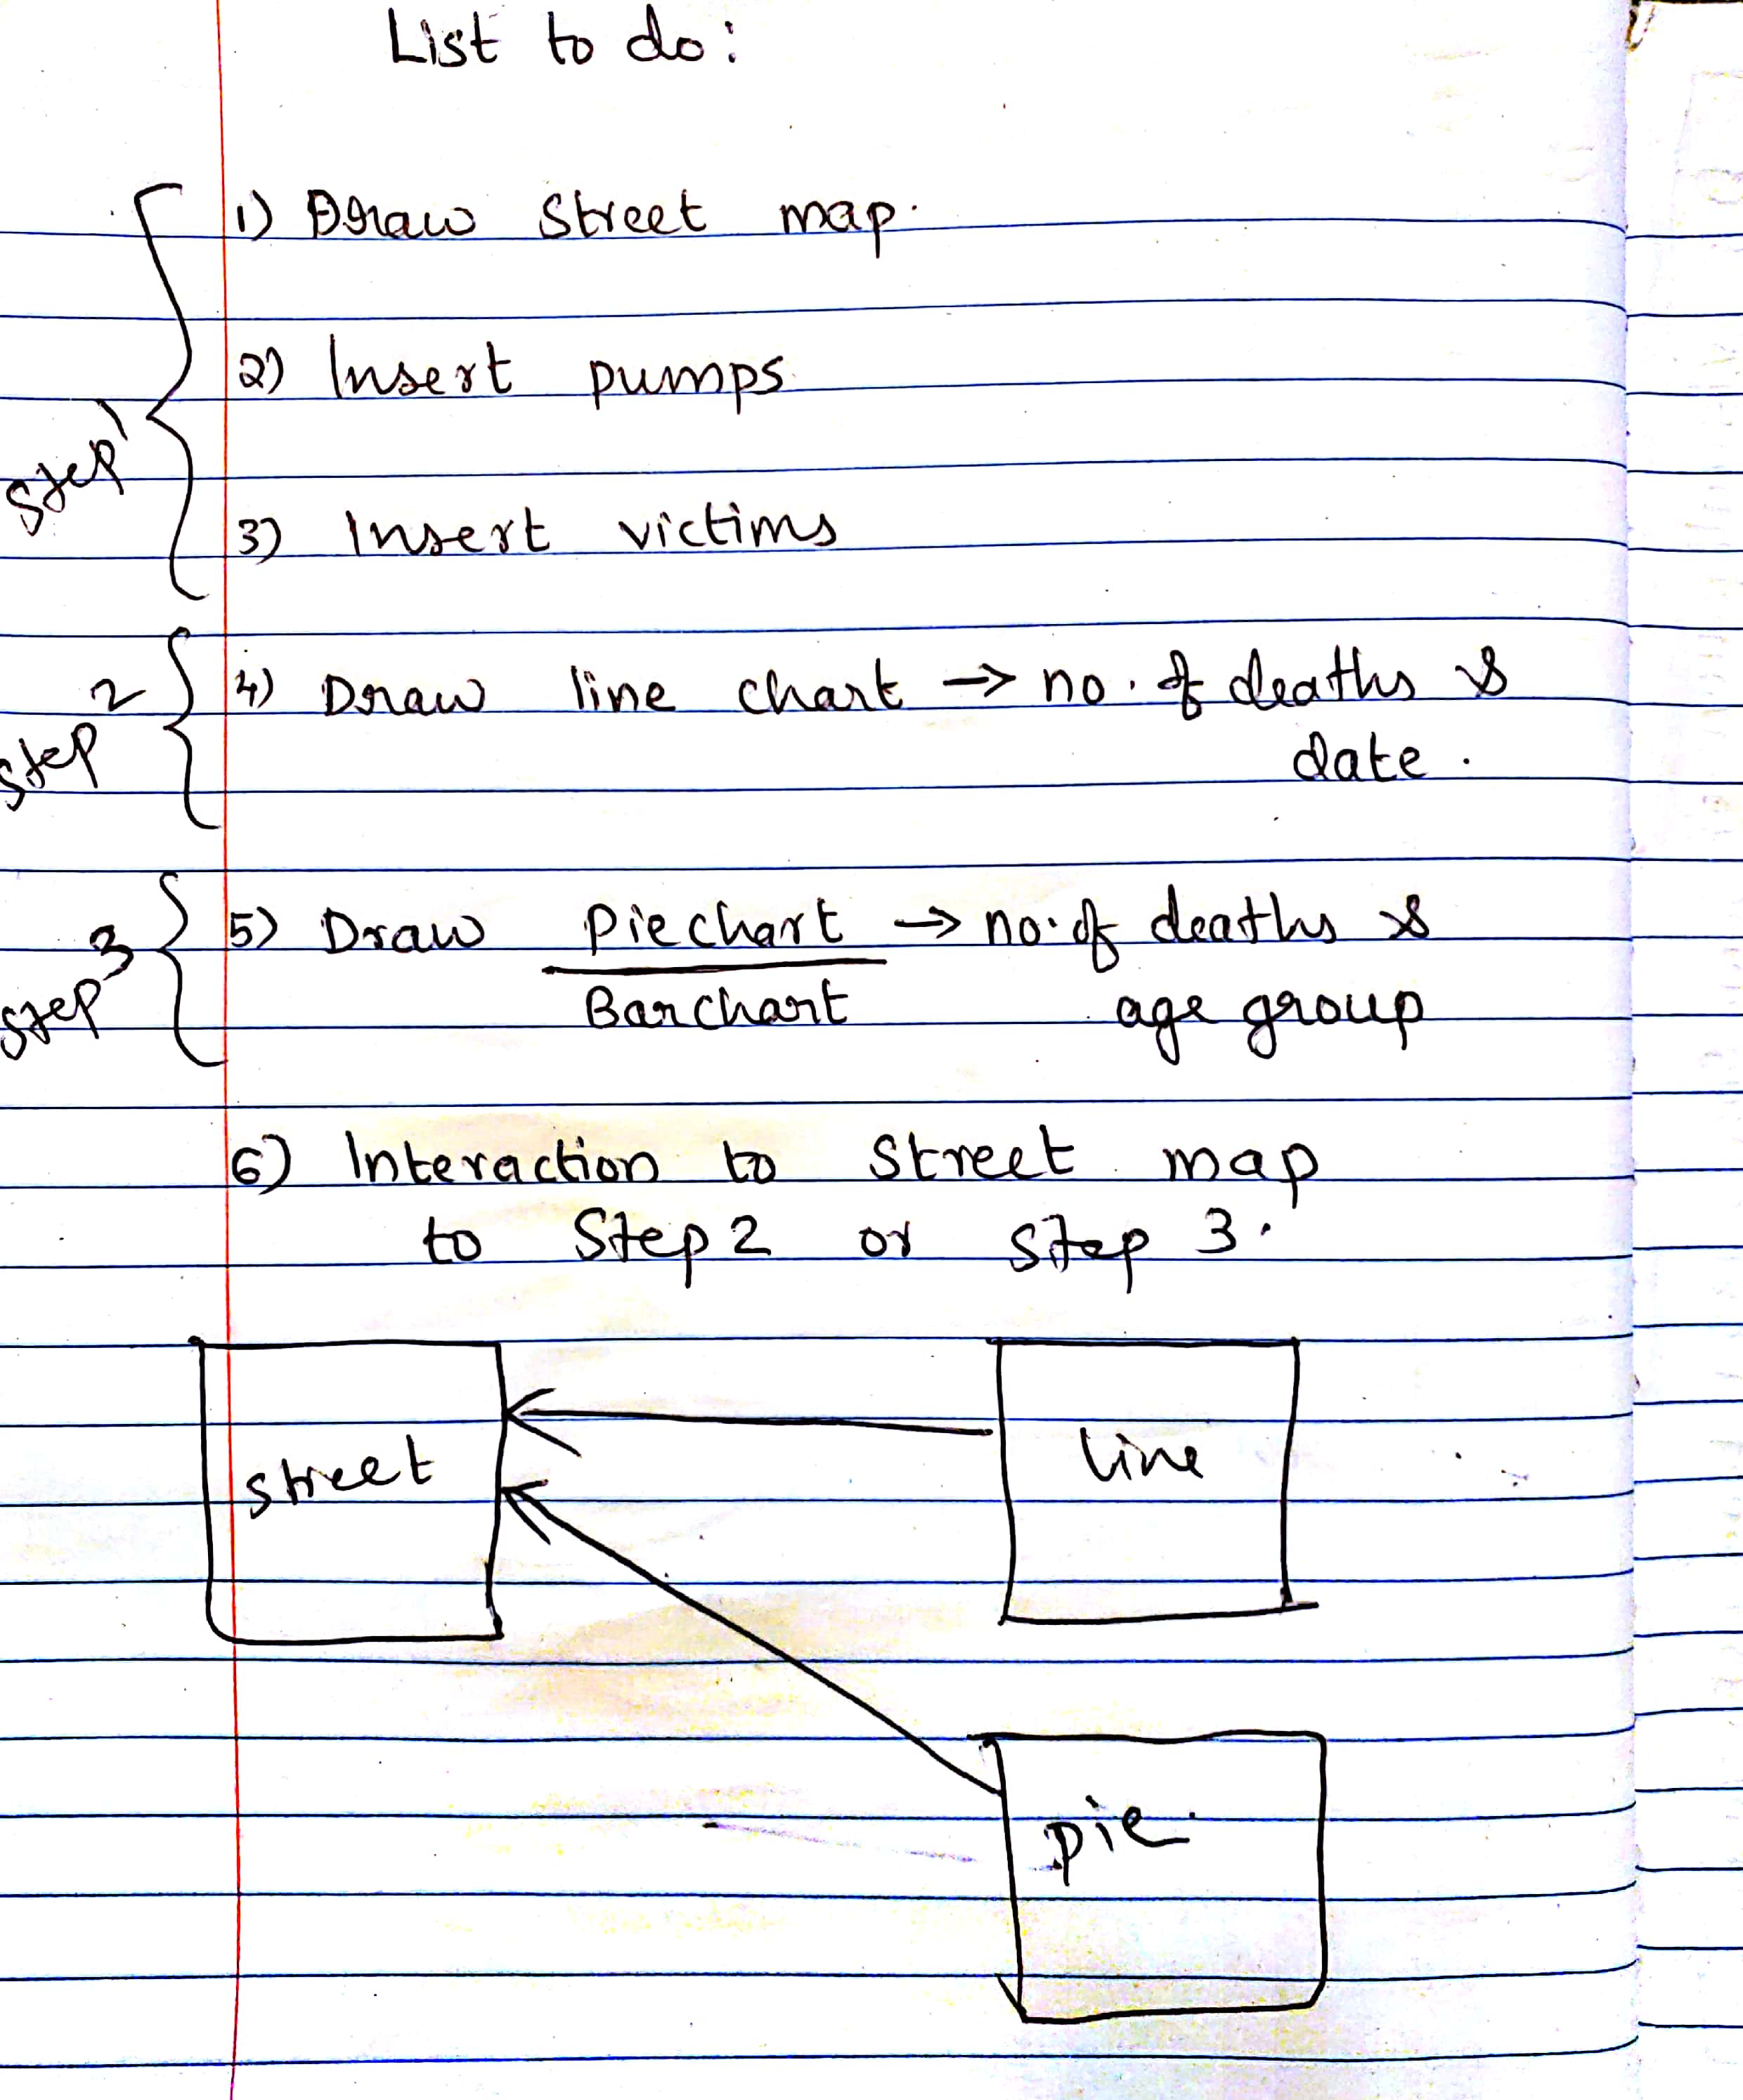 List to do:
1) Draw Street map.
2) Insert pumps
3) Insert victims
step 1
4) Draw line chart → no. of deaths &
date.
step 2
5) Draw Piechart → no. of deaths &
Barchart age group
step 3
6) Interaction to Street map
to Step 2 or Step 3.
street
line
pie